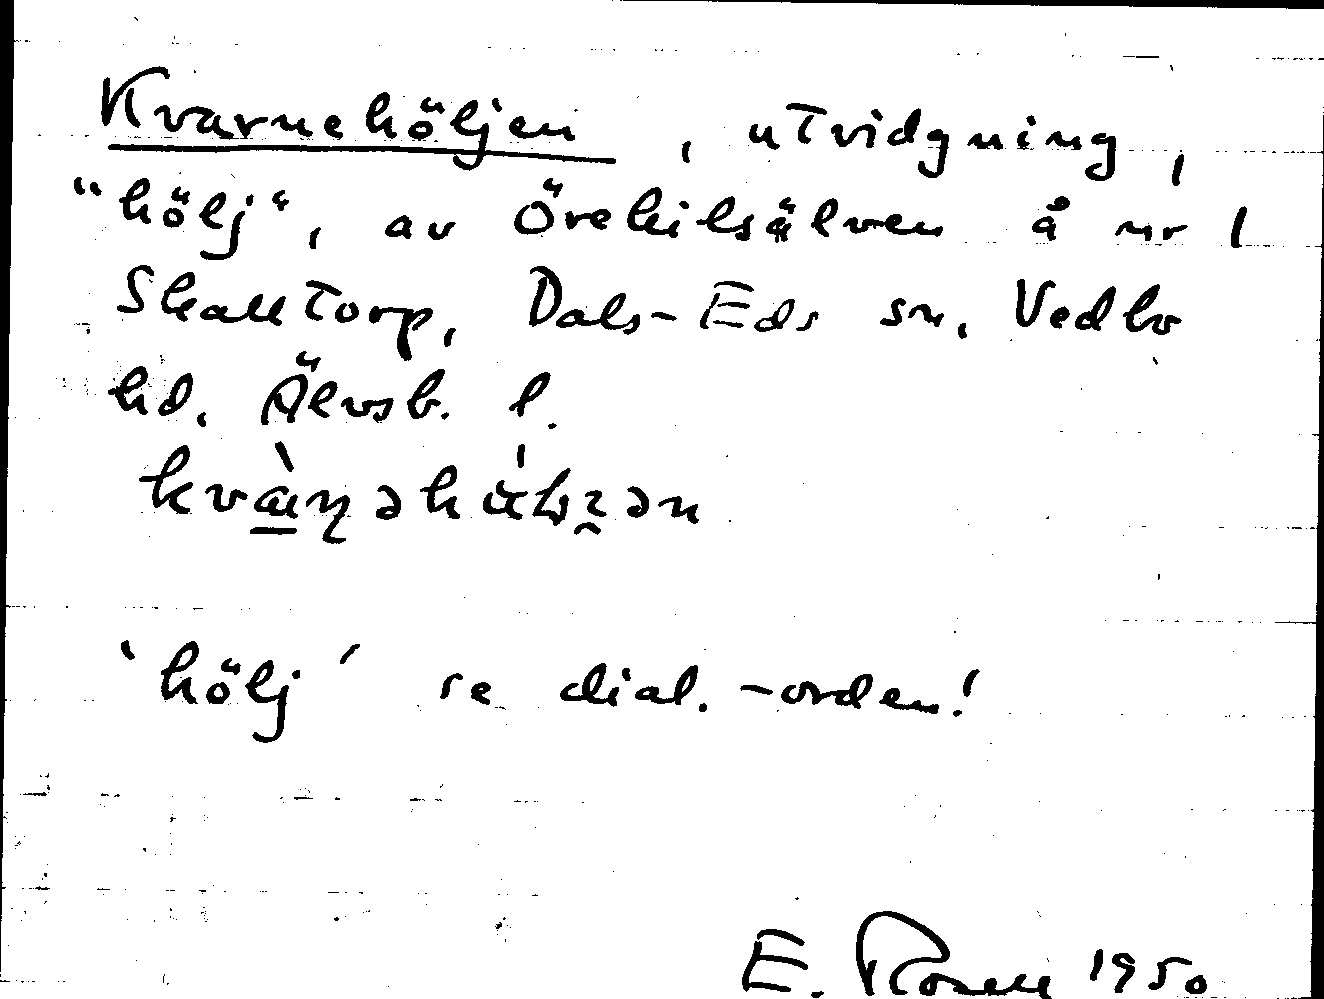 Kvarnehöljen, utvidgning,
"hölj", av Örekilsälven å nr 1
Skalltorp, Dals-Eds sn, Vedbo
hd. Älvsb. l.
'hölj' se dial.-orden!
E. Rosell 1950